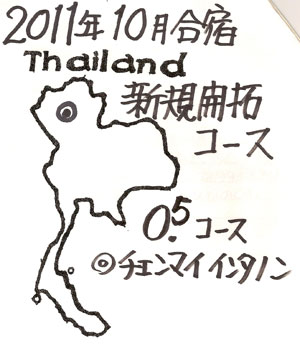 2011年10月合宿
Thailand
新規開拓
コース
0.5コース
◎チェンマイインタノン